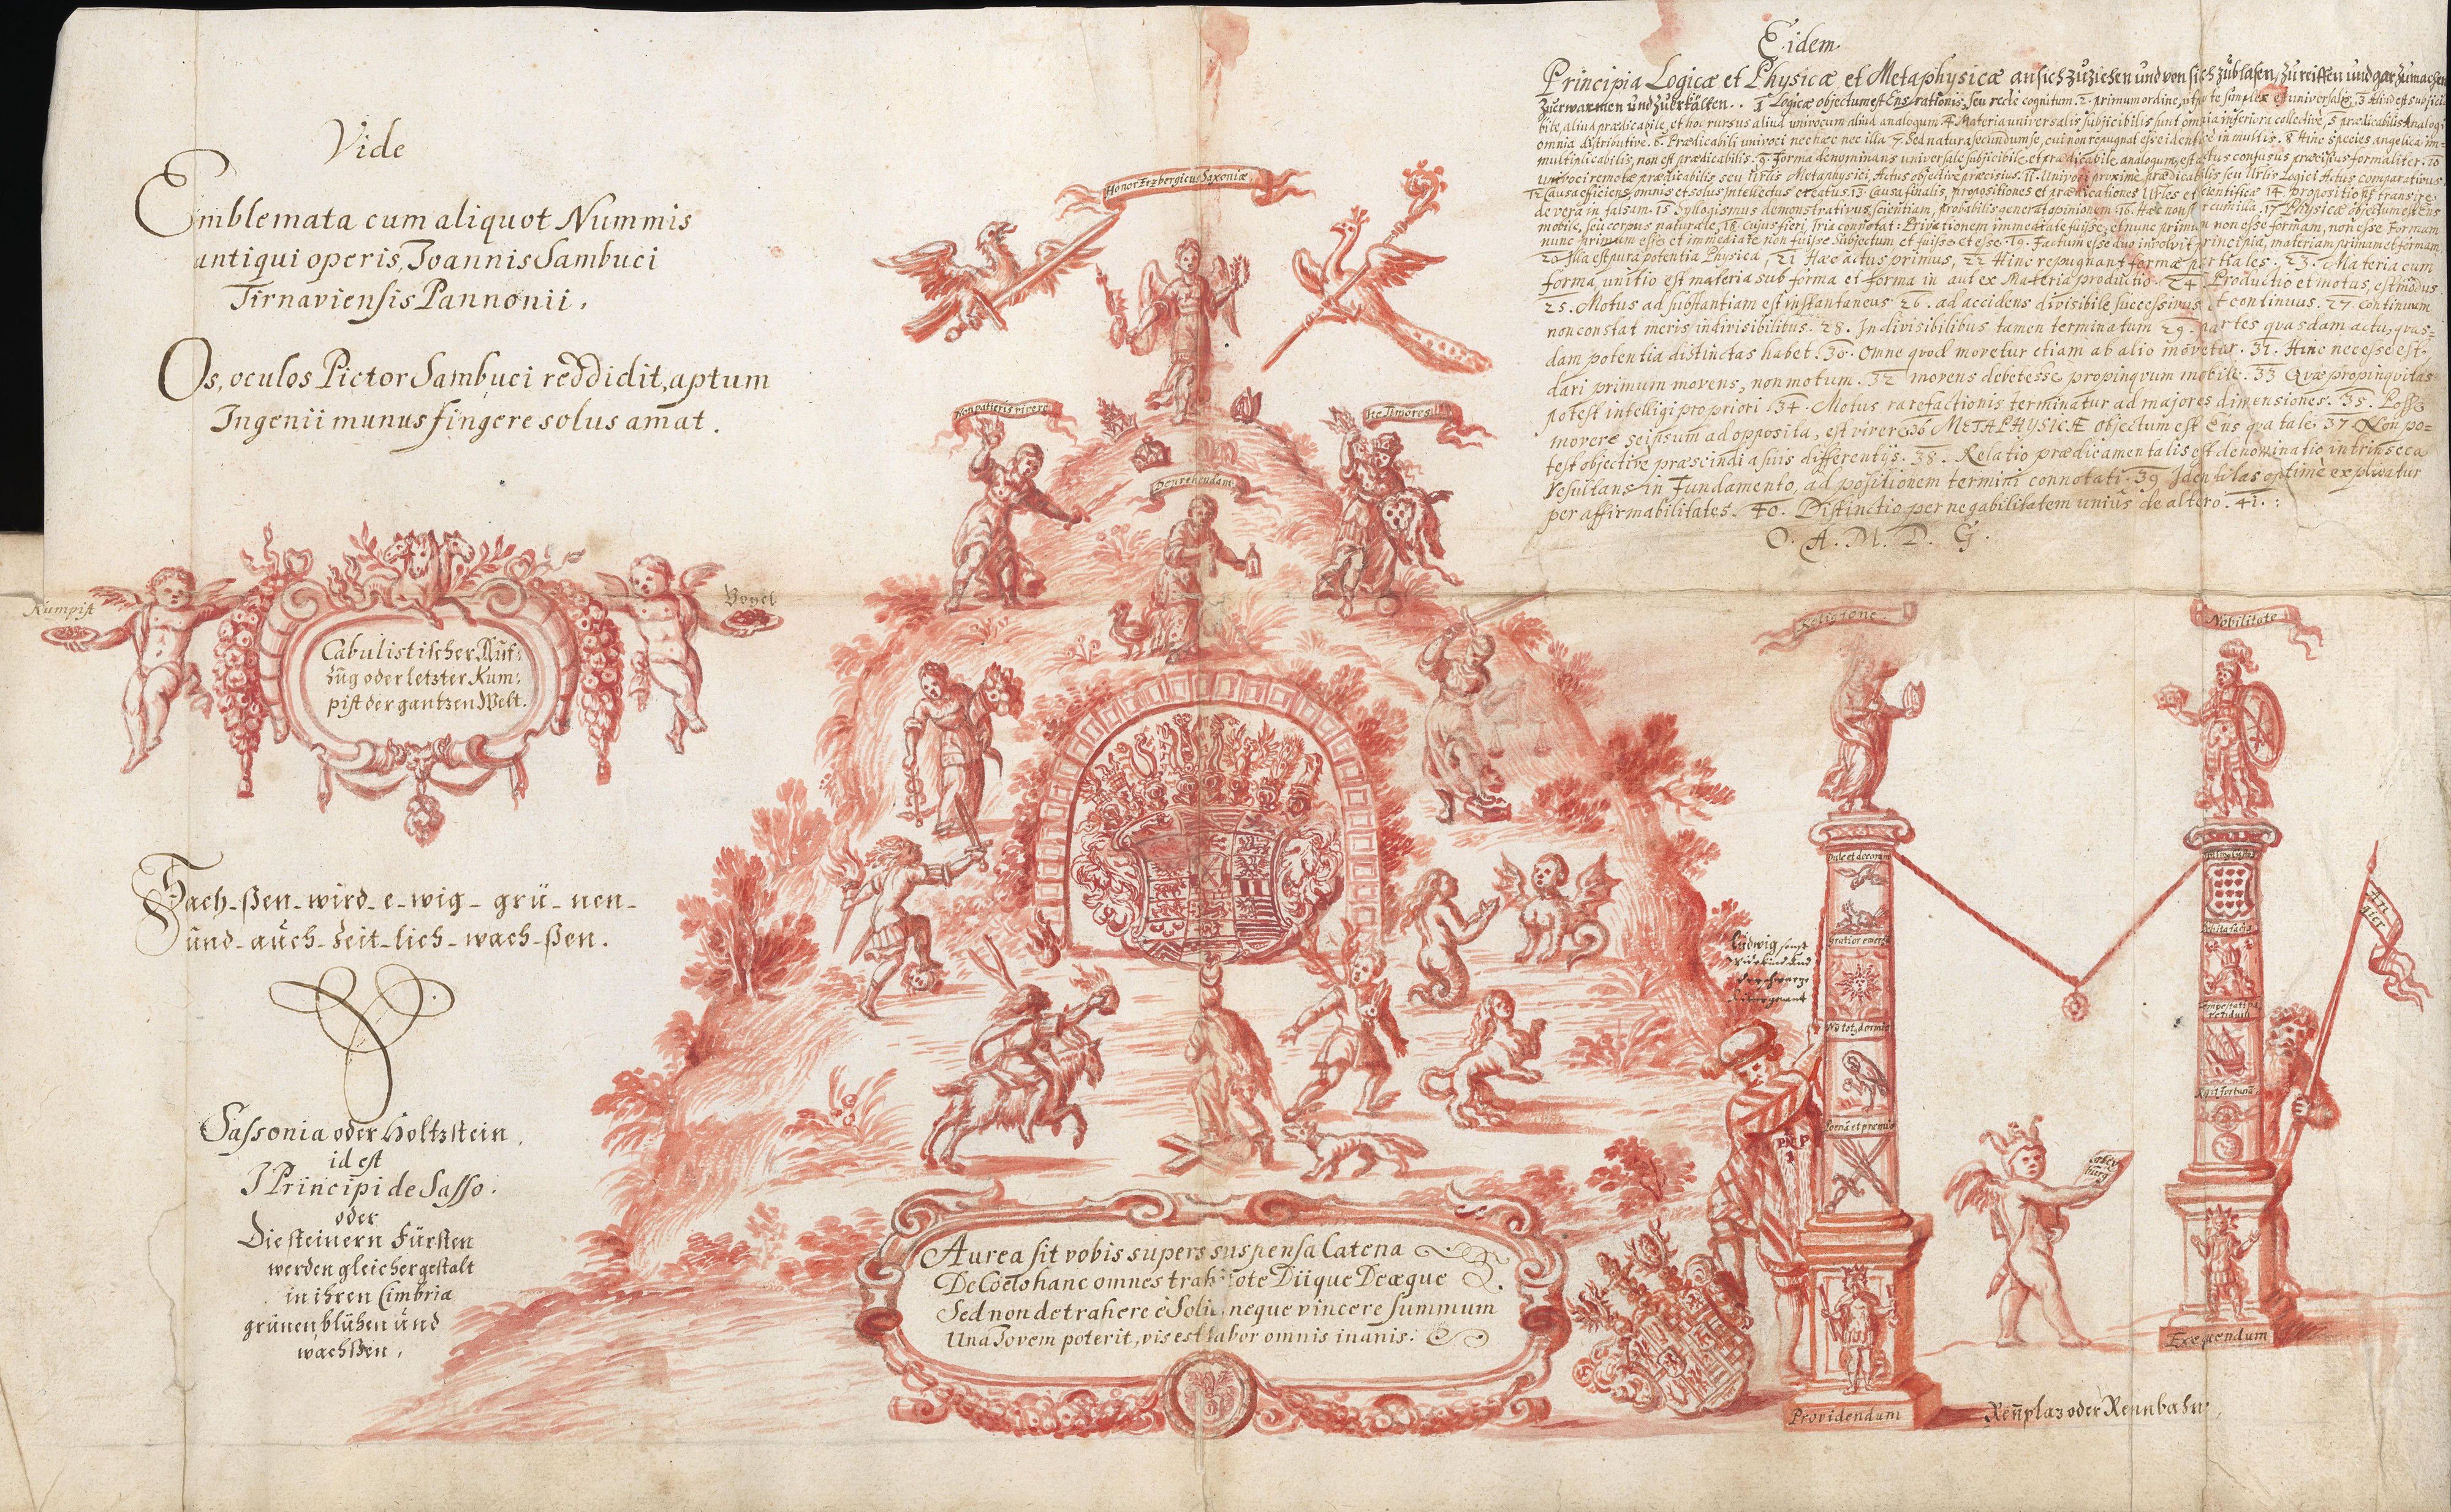 Vide
Emblemata cum aliquot Nummis
antiqui operis, Joannis Sambuci
Tirnaviensis Pannonii.
Os, oculos Pictor Sambuci reddidit, aptum
Ingenii munus fingere solus amat.
Kumpist
Vogel
Cabulistischer Auf-
zug oder letzter Kum-
pist der gantzen Welt.
Sach-ßen-wird-e-wig-grü-nen-
und-auch-zeit-lich-wach-ßen.
Sassonia oder Holtzstein.
id est
I Principi de Sasso.
oder
Die steinern Fürsten
werden gleicher gestalt
in ihren Cimbria
grünen blühen und
wachßen.
Honor Erzbergicus Saxoniæ
vivere
Timores
Deprehendam
Aurea sit vobis supers suspensa Catena
De Coelo hanc omnes trahitote Diique Deæque
Sed non detrahere è Solio neque vincere summum
Una Jovem poterit, vis est labor omnis inanis.
Eidem
Principia Logicæ et Physicæ et Metaphysicæ an sich zu ziehen und von sich zu blasen, zu reiffen und gar zu machen
zu erwarmen und zu erkälten. 1 Logicæ objectum est Ens rationis, seu recte cognitum. 2. primum ordine, utpote simplex et universalis, 3 Aliud est subjici
bile, aliud prædicabile, et hoc rursus aliud univocum aliud analogum 4 Materia universalis subjicibilis sunt omnia inferiora collective, 5 prædicabilis Analogi
omnia distributive. 6. Prædicabili univoci nec hæc nec illa 7 Sed natura secundum se, cui non repugnat esse identice in multis. 8 Hinc species angelica im-
multiplicabilis, non est prædicabilis. 9. Forma denominans universale subjicibile et prædicabile analogum, est actus confusus præcisius formaliter. 10
univoci remotæ prædicabilis, seu Urlis Metaphysici, Actus objective præcisius. 11. Univoci proxime prædicabilis, seu Urlis Logici Actus comparativus.
12 Causa efficiens, omnis et solus Intellectus creatus. 13 Causa finalis, propositiones et prædicationes Urles et scientificæ 14 propositio transire
de vera in falsam. 15 Syllogismus demonstrativus, scientiam, probabilis generat opinionem 16. Hæc non stat cum illa, 17 Physicæ objectum est Ens
mobile, seu corpus naturale, 18. Cujus fieri, tria connotat: Privationem immediate fuisse, et nunc primum non esse formam, non esse Formam
nunc primum esse et immediate non fuisse Subjectum et fuisse et esse. 19. Factum esse duo involvit principia, materiam primam et formam
20 Illa est pura potentia Physica, 21 Hæc actus primus, 22 Hinc repugnant formæ partiales. 23. Materia cum
forma, unitio est materia sub forma et forma in aut ex Materia productio. 24 Productio et motus, est modus
25. Motus ad substantiam est instantaneus 26. ad accidens divisibile successivus et continuus. 27 Continuum
non constat meris indivisibilibus. 28. Indivisibilibus tamen terminatum 29. partes quasdam actu, quas-
dam potentia distinctas habet. 30. Omne quod movetur etiam ab alio movetur. 31. Hinc necesse est,
dari primum movens, non motum. 32 movens debet esse propinquum mobile. 33 Quæ propinquitas
potest intelligi pro priori 34. Motus rarefactionis terminatur ad majores dimensiones. 35. Posse
movere seipsum ad opposita, est vivere 36 METAPHYSICÆ objectum est Ens qua tale 37. Non po-
test objective præscindi a suis differentijs. 38. Relatio prædicamentalis est denominatio intrinseca
resultans in Fundamento, ad positionem termini connotati. 39 Identitas optime explicatur
per affirmabilitates. 40. Distinctio per negabilitatem unius de altero. 41.
O. A. M. D. G.
Religione
Nobilitate
et decorum
Gratior emergo
dormio
Poena et præmio
Ludwig sonst
genant
Providendum
Exequendum
Rennplaz oder Rennbahn.